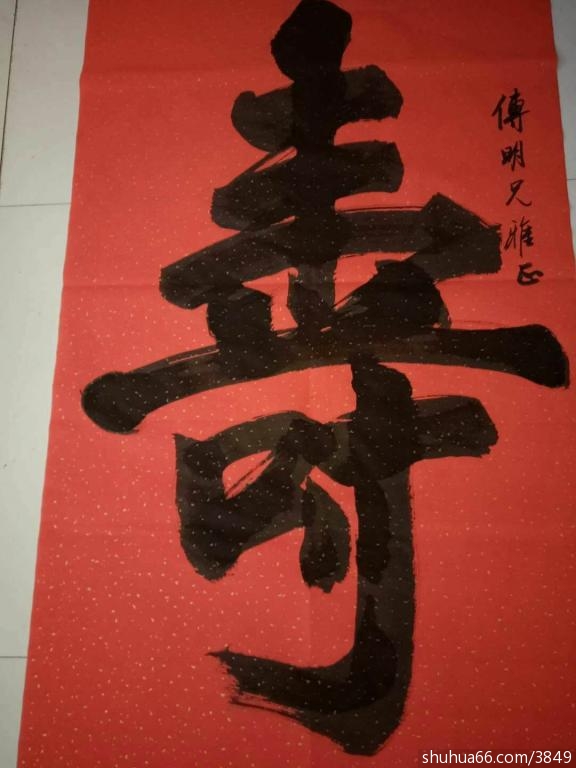 傅明兄雅正
壽
shuhua66.com/3849